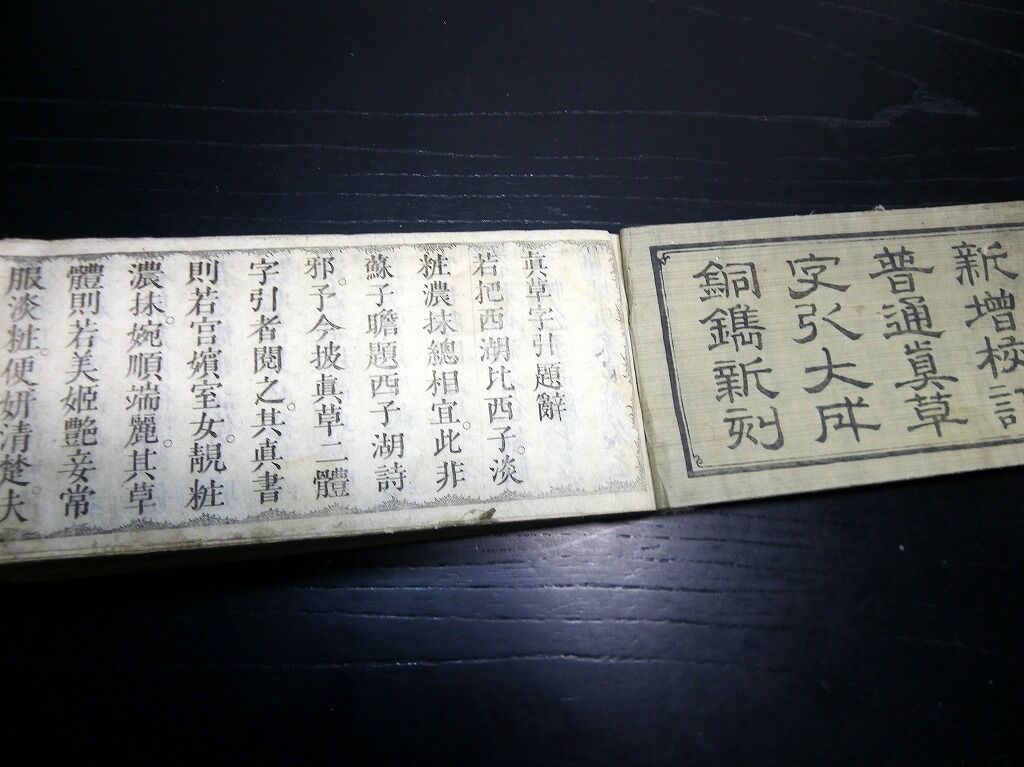 新增校訂
普通眞草
字引大成
銅鐫新刻
眞草字引題辭
若把西湖比西子。淡
粧濃抹總相宜。此非
蘇子瞻題西子湖詩
邪。予今披眞草二體
字引者閱之。其真書
則若宮嬪室女。靚粧
濃抹。婉順端麗。其草
體則若美姬艷妾常
服淡粧。便妍清楚。夫